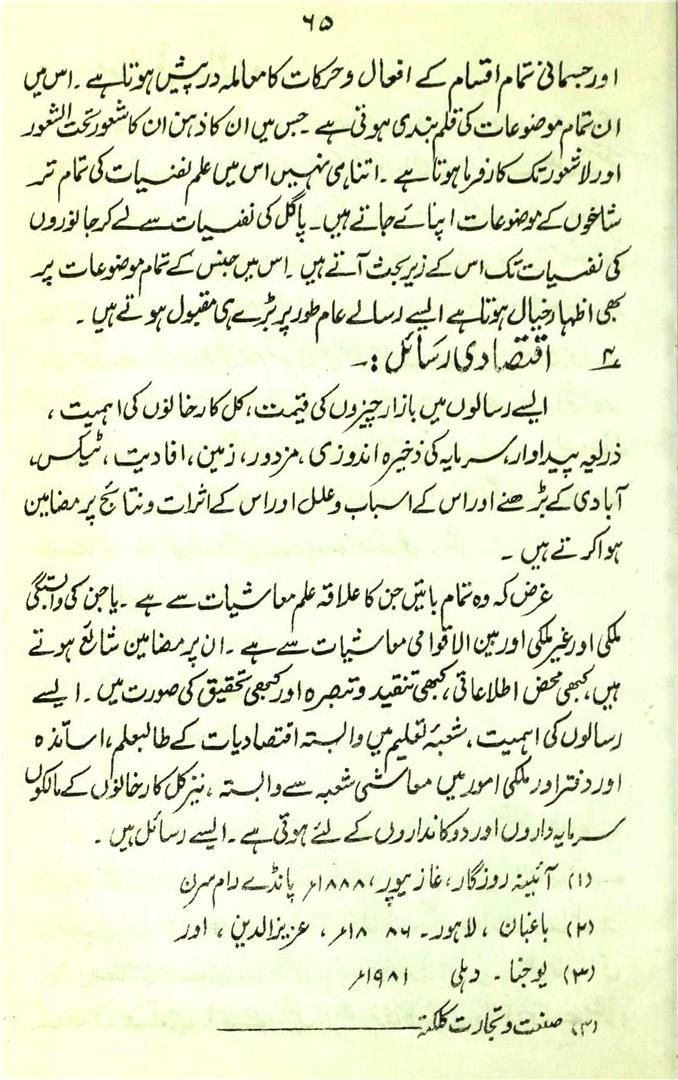 ۶۵
اور جسمانی تمام اقسام کے افعال و حرکات کا معاملہ درپیش ہوتا ہے۔ اس میں
ان تمام موضوعات کی قلم بندی ہوتی ہے۔ جس میں ان کا ذہن ان کا شعور تحت الشعور
اور لاشعور تک کار فرما ہوتا ہے۔ اتنا ہی نہیں اس میں علم نفسیات کی تمام تر
شاخوں کے موضوعات اپنائے جاتے ہیں۔ پاگل کی نفسیات سے لے کر جانوروں
کی نفسیات تک اس کے زیر بحث آتے ہیں۔ اس میں جنس کے تمام موضوعات پر
بھی اظہار خیال ہوتا ہے ایسے رسالے عام طور پر بڑے ہی مقبول ہوتے ہیں۔
۴ اقتصادی رسائل :۔
ایسے رسالوں میں بازار چیزوں کی قیمت، کل کارخانوں کی اہمیت،
ذریعہ پیداوار، سرمایہ کی ذخیرہ اندوزی، مزدور، زمین، افادیت، ٹیکس،
آبادی کے بڑھنے اور اس کے اسباب و علل اور اس کے اثرات و نتائج پر مضامین
ہوا کرتے ہیں۔
غرض کہ وہ تمام باتیں جن کا علاقہ علم معاشیات سے ہے۔ یا جن کی وابستگی
ملکی اور غیر ملکی اور بین الاقوامی معاشیات سے ہے۔ ان پر مضامین شائع ہوتے
ہیں، کبھی محض اطلاعاتی، کبھی تنقید و تبصرہ اور کبھی تحقیق کی صورت میں۔ ایسے
رسالوں کی اہمیت، شعبۂ تعلیم میں وابستہ اقتصادیات کے طالبعلم، اساتذہ
اور دفتر اور ملکی امور میں معاشی شعبہ سے وابستہ، نیز کل کارخانوں کے مالکوں
سرمایہ داروں اور دوکانداروں کے لئے ہوتی ہے۔ ایسے رسائل ہیں۔
(۱) آئینہ روزگار، غازیپور، ۱۸۸۸ء پانڈے رام سرن
(۲) باغبان، لاہور۔ ۱۸۸۶ء، عزیز الدین، اور
(۳) یوجنا۔ دہلی ۱۹۸۱ء
(۴) صنعت و تجارت کلکتہ